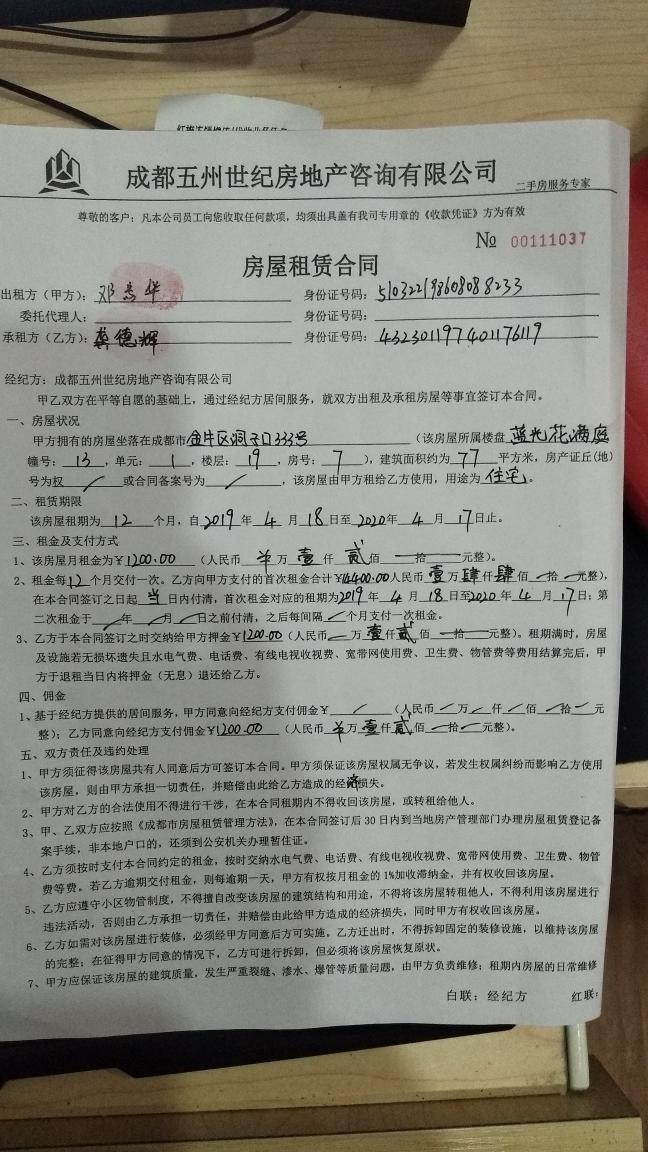 成都五州世纪房地产咨询有限公司
二手房服务专家
尊敬的客户：凡本公司员工向您收取任何款项，均须出具盖有我司专用章的《收款凭证》方为有效
№ 00111037
房屋租赁合同
出租方（甲方）： 身份证号码：510322198608088233
委托代理人： 身份证号码：
承租方（乙方）：龚德辉 身份证号码：432301197401176119
经纪方：成都五州世纪房地产咨询有限公司
甲乙双方在平等自愿的基础上，通过经纪方居间服务，就双方出租及承租房屋等事宜签订本合同。
一、房屋状况
甲方拥有的房屋坐落在成都市金牛区洞子口333号（该房屋所属楼盘蓝光花满庭
幢号：13，单元：1，楼层：19，房号：7），建筑面积约为77平方米，房产证丘(地)
号为权/或合同备案号为/，该房屋由甲方租给乙方使用，用途为住宅。
二、租赁期限
该房屋租期为12个月，自2019年4月18日至2020年4月17日止。
三、租金及支付方式
1、该房屋月租金为￥1200.00（人民币 万壹仟贰佰—拾—元整）。
2、租金每12个月交付一次。乙方向甲方支付的首次租金合计￥14400.00人民币壹万肆仟肆佰—拾—元整），
在本合同签订之日起当日内付清，首次租金对应的租期为2019年4月18日至2020年4月17日；第
二次租金于/年/月/日之前付清，之后每间隔/个月支付一次租金。
3、乙方于本合同签订之时交纳给甲方押金￥1200.00（人民币—万壹仟贰佰—拾—元整）。租期满时，房屋
及设施若无损坏遗失且水电气费、电话费、有线电视收视费、宽带网使用费、卫生费、物管费等费用结算完后，甲
方于退租当日内将押金（无息）退还给乙方。
四、佣金
1、基于经纪方提供的居间服务，甲方同意向经纪方支付佣金￥/（人民币/万/仟/佰/拾/元
整）；乙方同意向经纪方支付佣金￥1200.00（人民币 万壹仟贰佰—拾—元整）。
五、双方责任及违约处理
1、甲方须征得该房屋共有人同意后方可签订本合同。甲方须保证该房屋权属无争议，若发生权属纠纷而影响乙方使用
该房屋，则由甲方承担一切责任，并赔偿由此给乙方造成的经济损失。
2、甲方对乙方的合法使用不得进行干涉，在本合同租期内不得收回该房屋，或转租给他人。
3、甲、乙双方应按照《成都市房屋租赁管理方法》，在本合同签订后30日内到当地房产管理部门办理房屋租赁登记备
案手续，非本地户口的，还须到公安机关办理暂住证。
4、乙方须按时支付本合同约定的租金，按时交纳水电气费、电话费、有线电视收视费、宽带网使用费、卫生费、物管
费等费。若乙方逾期交付租金，则每逾期一天，甲方有权按月租金的1%加收滞纳金，并有权收回该房屋。
5、乙方应遵守小区物管制度，不得擅自改变该房屋的建筑结构和用途，不得将该房屋转租他人，不得利用该房屋进行
违法活动，否则由乙方承担一切责任，并赔偿由此给甲方造成的经济损失，同时甲方有权收回该房屋。
6、乙方如需对该房屋进行装修，必须经甲方同意后方可实施。乙方迁出时，不得拆卸固定的装修设施，以维持该房屋
的完整；在征得甲方同意的情况下，乙方可进行拆卸，但必须将该房屋恢复原状。
7、甲方应保证该房屋的建筑质量，发生严重裂缝、渗水、爆管等质量问题，由甲方负责维修；租期内房屋的日常维修
白联：经纪方 红联：